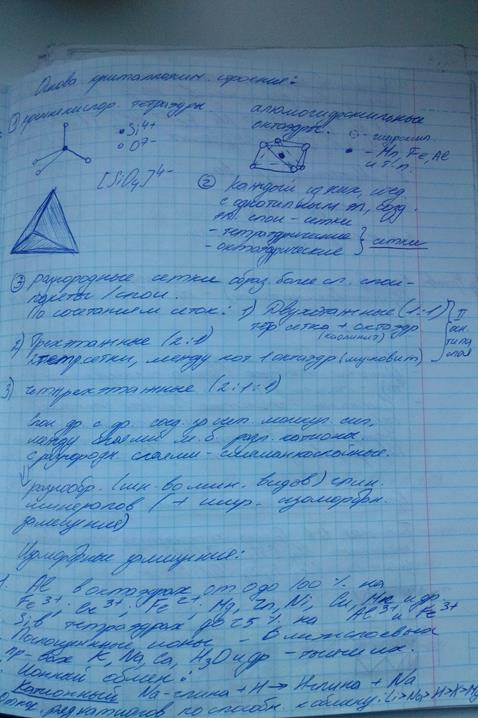 Основа кристаллохим. строения:
① кремнекислор. тетраэдры
Si4+
O7-
[SiO4]4-
алюмогидроксильные
октаэдры.
- гидроксил.
- Mn, Fe, Al
и т.п.
② Каждый из них, соед.
с однотипным эл, созд.
слои - сетки
- тетраэдрические
- октаэдрические } сетки
③ разнородные сетки образ. более сл. слои-
пакеты / слои.
По сочетанием сеток: 1) Двухэтажные (1:1)
тетр сетка + октаэдр
(каолинит)
2) Трехэтажные (2:1)
2 тетр сетки, между кот 1 октаэдр (мусковит)
} II
осн.
типа
слоя
3) четырехэтажные (2:1:1)
Слои др. с др. соед. за счет. молекул. сил.
между слоями м. б. разл. катионы.
с разнородн. слоями - смешаннослойные.
разнообр. (мн-во мин. видов) глин.
минералов (+ шир. изоморфн.
замещения)
Изоморфные замещения:
1. Al в октаэдрах от 0 до 100 % на
Fe3+, Cr3+, Fe2+, Mg, Zn, Ni, Cu, Mn и др
Si в тетраэдрах до 25 % на Al3+ и Fe3+
Поглощенные ионы - в межслоевых
пр-вах K, Na, Ca, H3O и др
Ионный обмен:
Катионный Na-глина + H → H-глина + Na
катионов по способн. к обмену: Li>Na>H>K>Mg